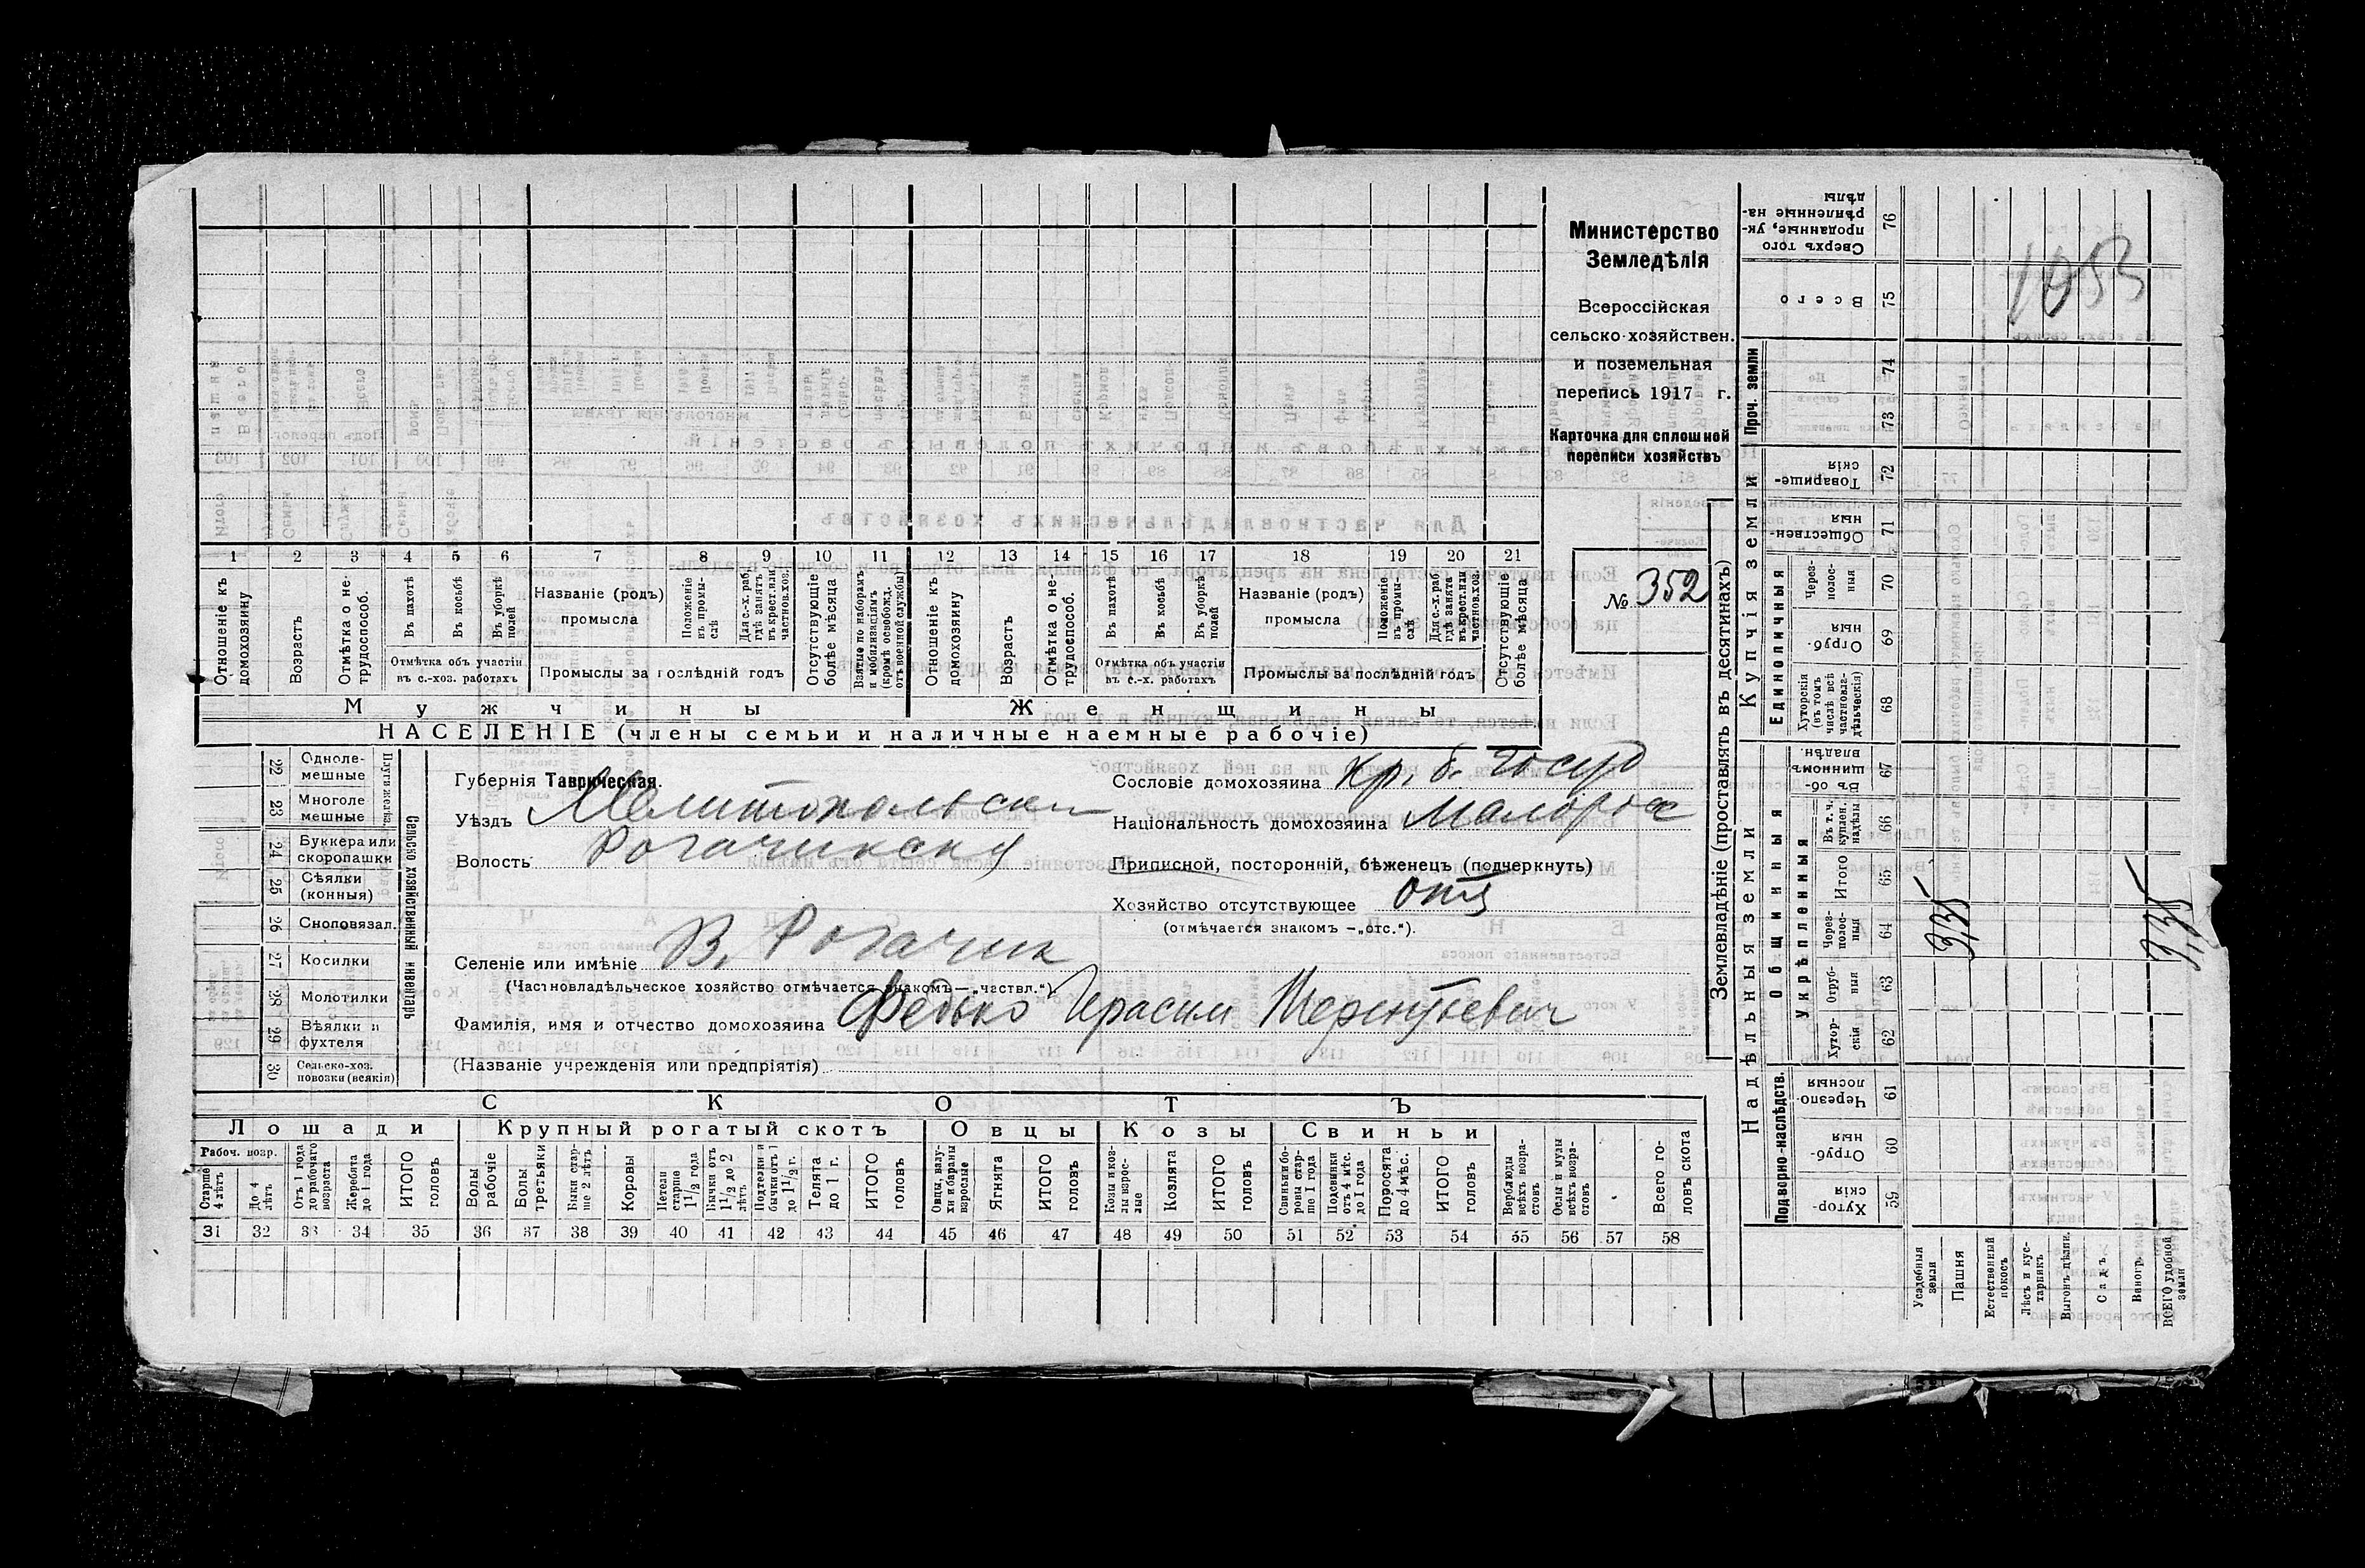 Министерство
Земледѣлія
Всероссійская
сельско-хозяйствен.
и поземельная
перепись 1917 г.
Карточка для сплошной
переписи хозяйствъ
№ 352
1053
1 2 3 4 5 6 7 8 9 10 11 12 13 14 15 16 17 18 19 20 21
Отношеніе къ домохозяину
Возрастъ
Отмѣтка о не-трудоспособ.
Въ пахотѣ
Въ косьбѣ
Въ уборкѣ полей
Отмѣтка объ участіи
въ с.-хоз. работахъ
Названіе (родъ)
промысла
Положеніе въ промы-слѣ
Для с.-х. раб. гдѣ занятъ въ крест. или частнов. хоз.
Промыслы за послѣдній годъ
Отсутствующіе болѣе мѣсяца
Взятые по наборамъ и мобилизаціямъ (кромѣ освобожд. отъ военной службы)
Отношеніе къ домохозяину
Возрастъ
Отмѣтка о не-трудоспособ.
Въ пахотѣ
Въ косьбѣ
Въ уборкѣ полей
Отмѣтка объ участіи
въ с.-х. работахъ
Названіе (родъ)
промысла
Положеніе въ промы-слѣ
Для с.-х. раб. гдѣ занята въ крест. или частнов. хоз.
Промыслы за послѣдній годъ
Отсутствующіе болѣе мѣсяца
Мужчины Женщины
НАСЕЛЕНІЕ (члены семьи и наличные наемные рабочіе)
Сельско хозяйственный инвентарь
Плуги желѣз.
22 Одноле-мешные
23 Многоле мешные
24 Буккера или скоропашки
25 Сѣялки (конныя)
26 Сноповязал.
27 Косилки
28 Молотилки
29 Вѣялки и фухтеля
30 Сельско-хоз. повозки (всякія)
Губернія Таврическая.
Уѣздъ Мелитопольски
Волость Рогачикску
Селеніе или имѣніе В. Рогачик
(Частновладѣльческое хозяйство отмѣчается знакомъ—„частвл.“).
Фамилія, имя и отчество домохозяина Федько Герасим Терентьевич
(Названіе учрежденія или предпріятія)
Сословіе домохозяина Кр. б. Госуд
Національность домохозяина Малоросс
Приписной, посторонній, бѣженецъ (подчеркнуть)
Хозяйство отсутствующее отс
(отмѣчается знакомъ —„отс.“).
СКОТЪ
Лошади Крупный рогатый скотъ Овцы Козы Свиньи
Рабоч. возр.
Старше 4 лѣтъ
До 4 лѣтъ
Отъ 1 года до рабочаго возраста
Жеребята до 1 года
ИТОГО головъ
Волы рабочіе
Волы третьяки
Быки стар-ше 2 лѣтъ
Коровы
Нетели старше 1 1/2 года
Бычки отъ 1 1/2 до 2 лѣтъ
Подтелки и бычки отъ 1 до 1 1/2 г.
Телята до 1 г.
ИТОГО головъ
Овцы, валу-хи и бараны взрослые
Ягнята
ИТОГО головъ
Козы и коз-лы взрос-лые
Козлята
ИТОГО головъ
Свиньи и бо-ровы стар-ше 1 года
Подсвинки отъ 4 мѣс. до 1 года
Поросята до 4 мѣс.
ИТОГО головъ
Верблюды всѣхъ возра-стовъ
Ослы и мулы всѣхъ возра-стовъ
Всего го-ловъ скота
31 32 33 34 35 36 37 38 39 40 41 42 43 44 45 46 47 48 49 50 51 52 53 54 55 56 57 58
Землевладѣніе (проставлять въ десятинахъ)
Купчія земли
Надѣльныя земли
Сверхъ того проданные, ук-рѣпленные на-дѣлы 76
Всего 75
Проч. земли 74 73
Товарище-скія 72
Обществен-ныя 71
Единоличныя
Через-полос-ныя 70
Отруб-ныя 69
Хуторскія (въ томъ числѣ всѣ частновла-дѣльческія) 68
Общинныя
Въ об-щинномъ владѣн. 67
Укрѣпленныя
Въ т. ч. куплен. надѣлы 66
Итого 65
Через-полос-ныя 64
Отруб-ныя 63
Хутор-скія 62
Подворно-наслѣдств.
Черезпо-лосныя 61
Отруб-ныя 60
Хутор-скія 59
3,35
3,35
Усадебныя земли
Пашня
Естественный покосъ
Лѣсъ и кус-тарникъ
Выгонъ дѣлим.
Садъ
Виногр.
ВСЕГО удобной земли